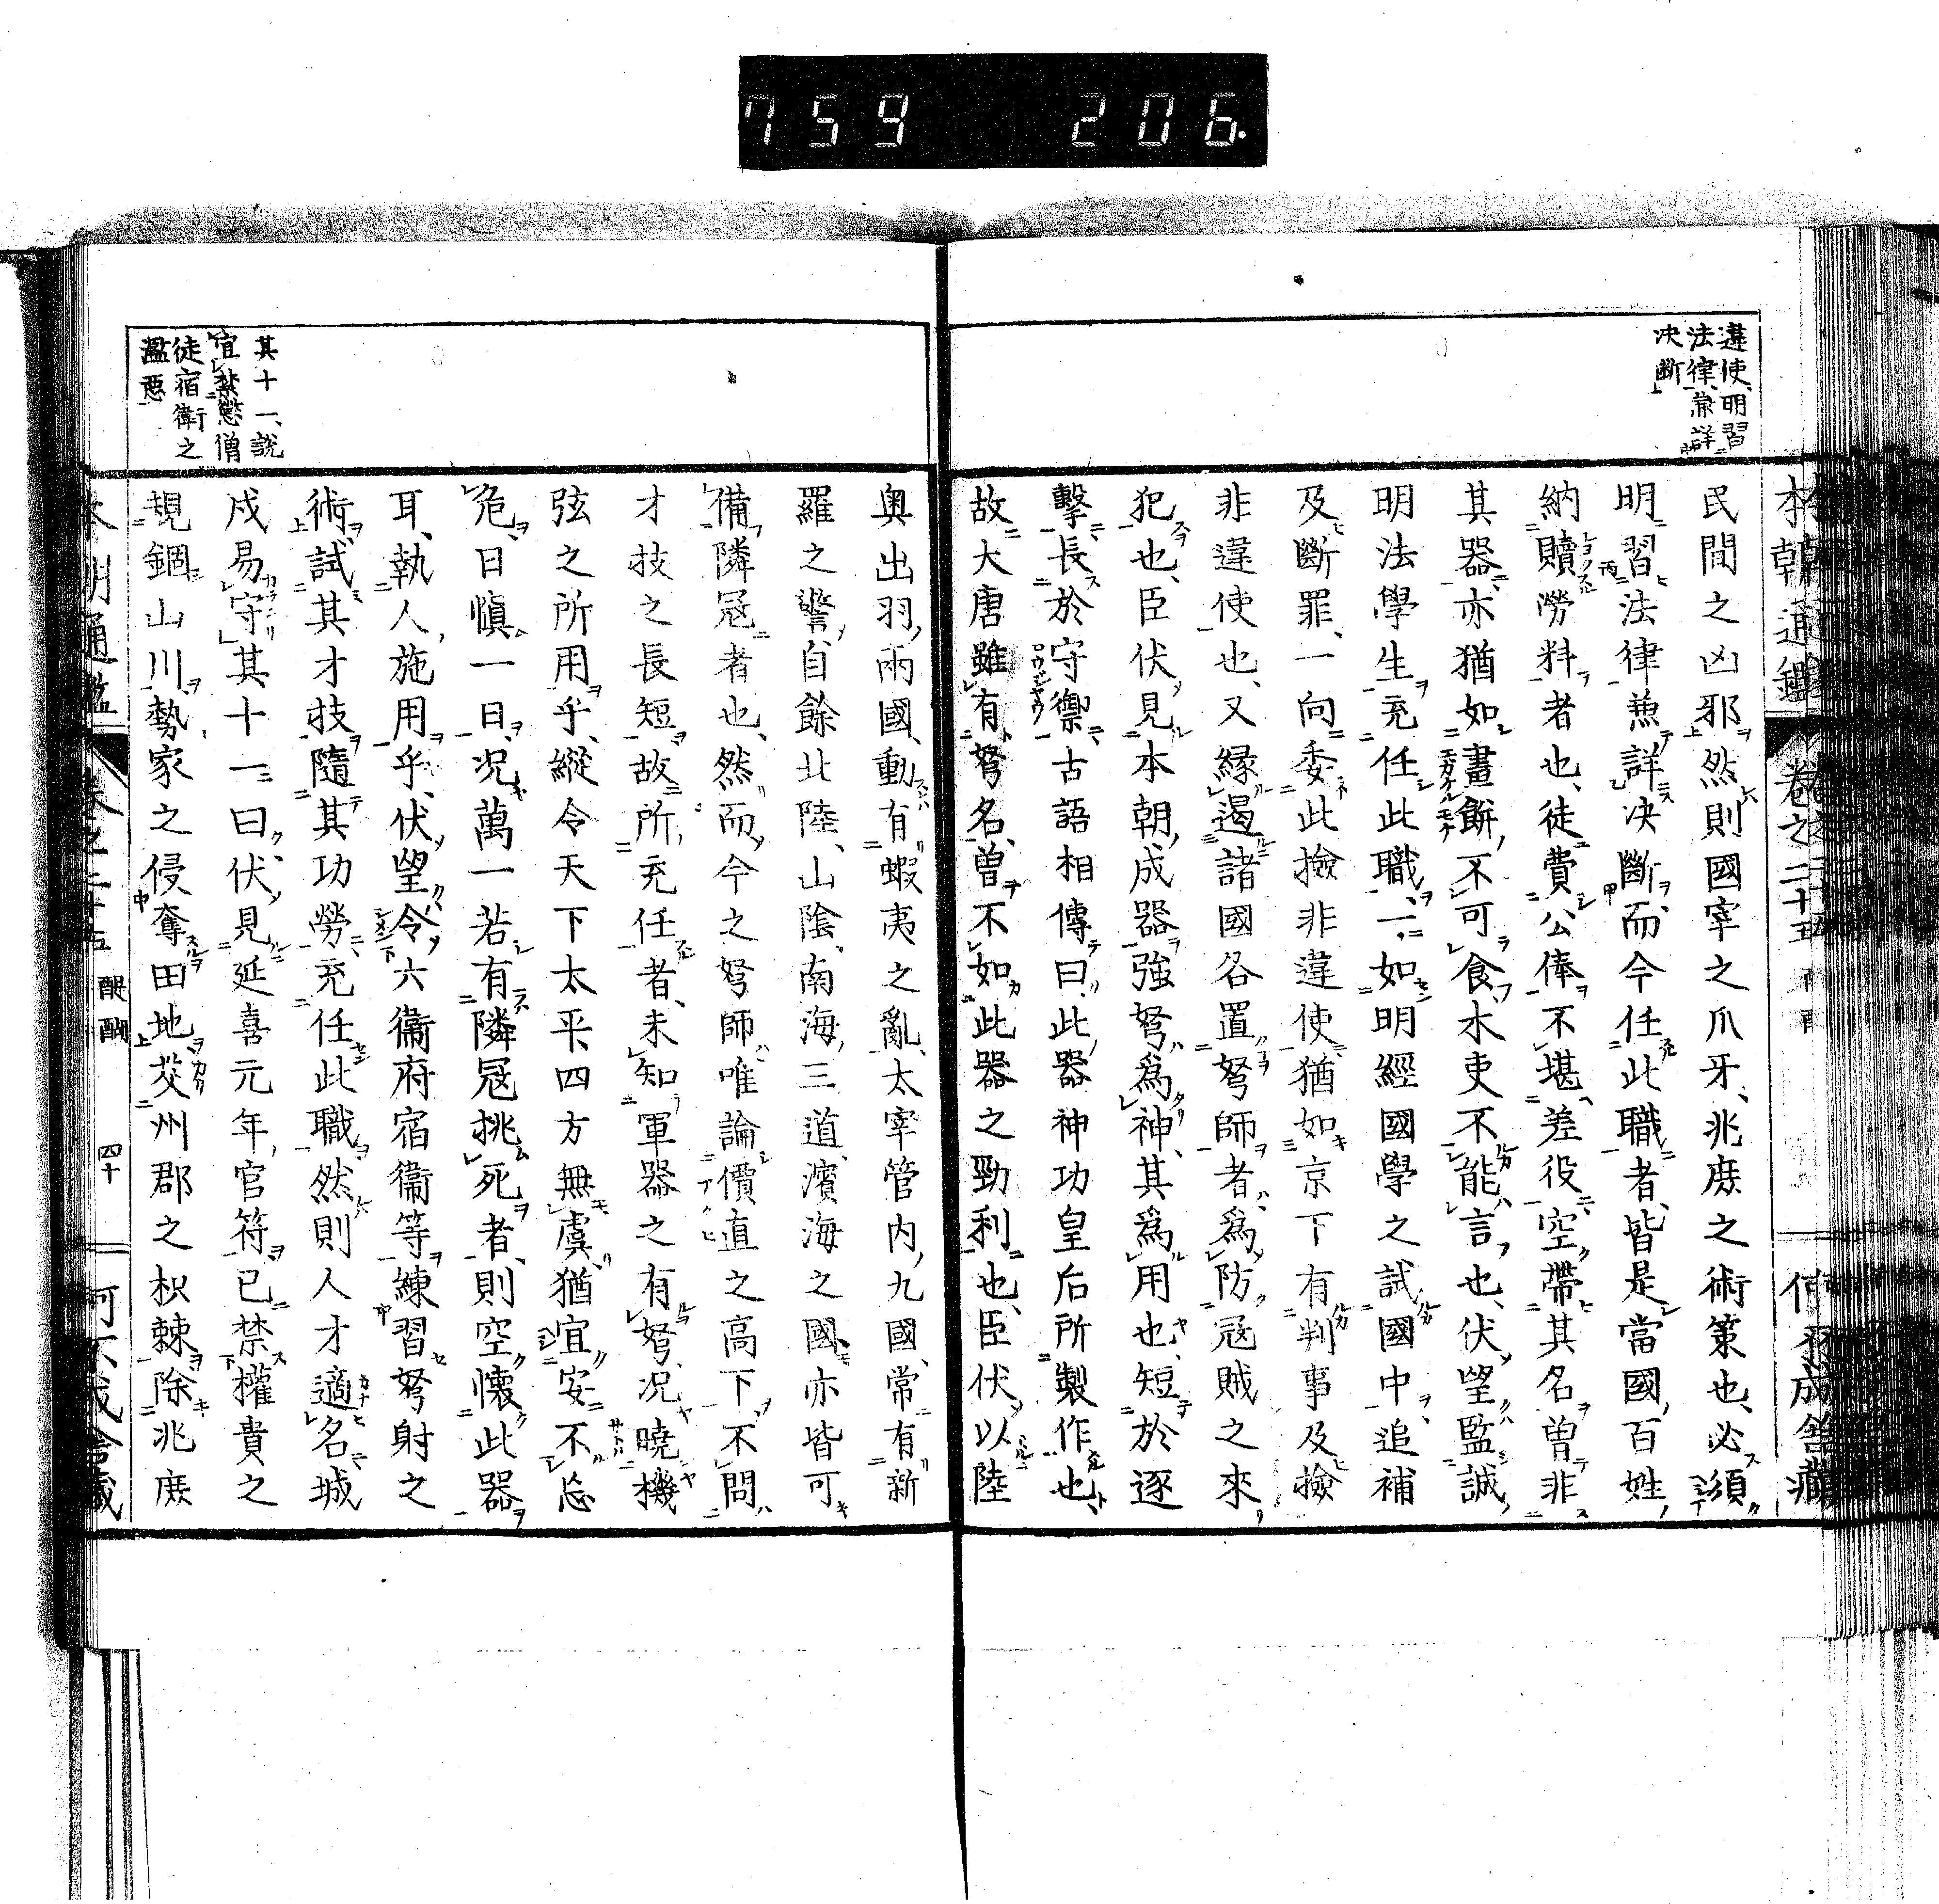 759 206.
違使、明習
法律、兼詳
決斷
本朝通鑑 卷之二十五
民間之凶邪然則國宰之爪牙、兆庶之術策也、必須
明習法律兼詳決斷、而今任此職者、皆是當國百姓
納贖勞料者也、徒費公俸、不堪差役、空帶其名曾非
其器、亦猶如畫餅不可食、木吏不能言也、伏望監試
明法學生、充任此職、一如明經國學之試、國中追補
及斷罪、一向委此撿非違使、猶如京下有判事及撿
非違使也、又緣遏諸國各置弩師者、爲防寇賊之來
犯也、臣伏見本朝成器強弩爲神、其爲用也、短於逐
擊、長於守禦、古語相傳曰、此器神功皇后所製作也、
故大唐雖有弩名、曾不如此器之勁利也、臣伏以陸
奥出羽兩國、動有蝦夷之亂、太宰管内九國、常有新
羅之警、自餘北陸、山陰、南海三道、濱海之國、亦皆可
備隣寇者也、然而今之弩師、唯論價直之高下、不問
才技之長短、故所充任者、未知軍器之有弩、況曉機
弦之所用乎、縱令天下太平、四方無虞、猶宜安不忘
危、日愼一日、況萬一若有隣寇挑死者、則空懷此器
耳、執人施用乎、伏望令六衞府宿衞等練習弩射之
術、試其才技、隨其功勞、充任此職、然則人才適名、城
戍易守、其十一曰、伏見延喜元年官符、已禁權貴之
規錮山川、勢家之侵奪田地、芟州郡之枳棘、除兆庶
其十一、說
宜禁懲僧
徒宿衞之
濫惡
卷之二十五 醍醐 四十